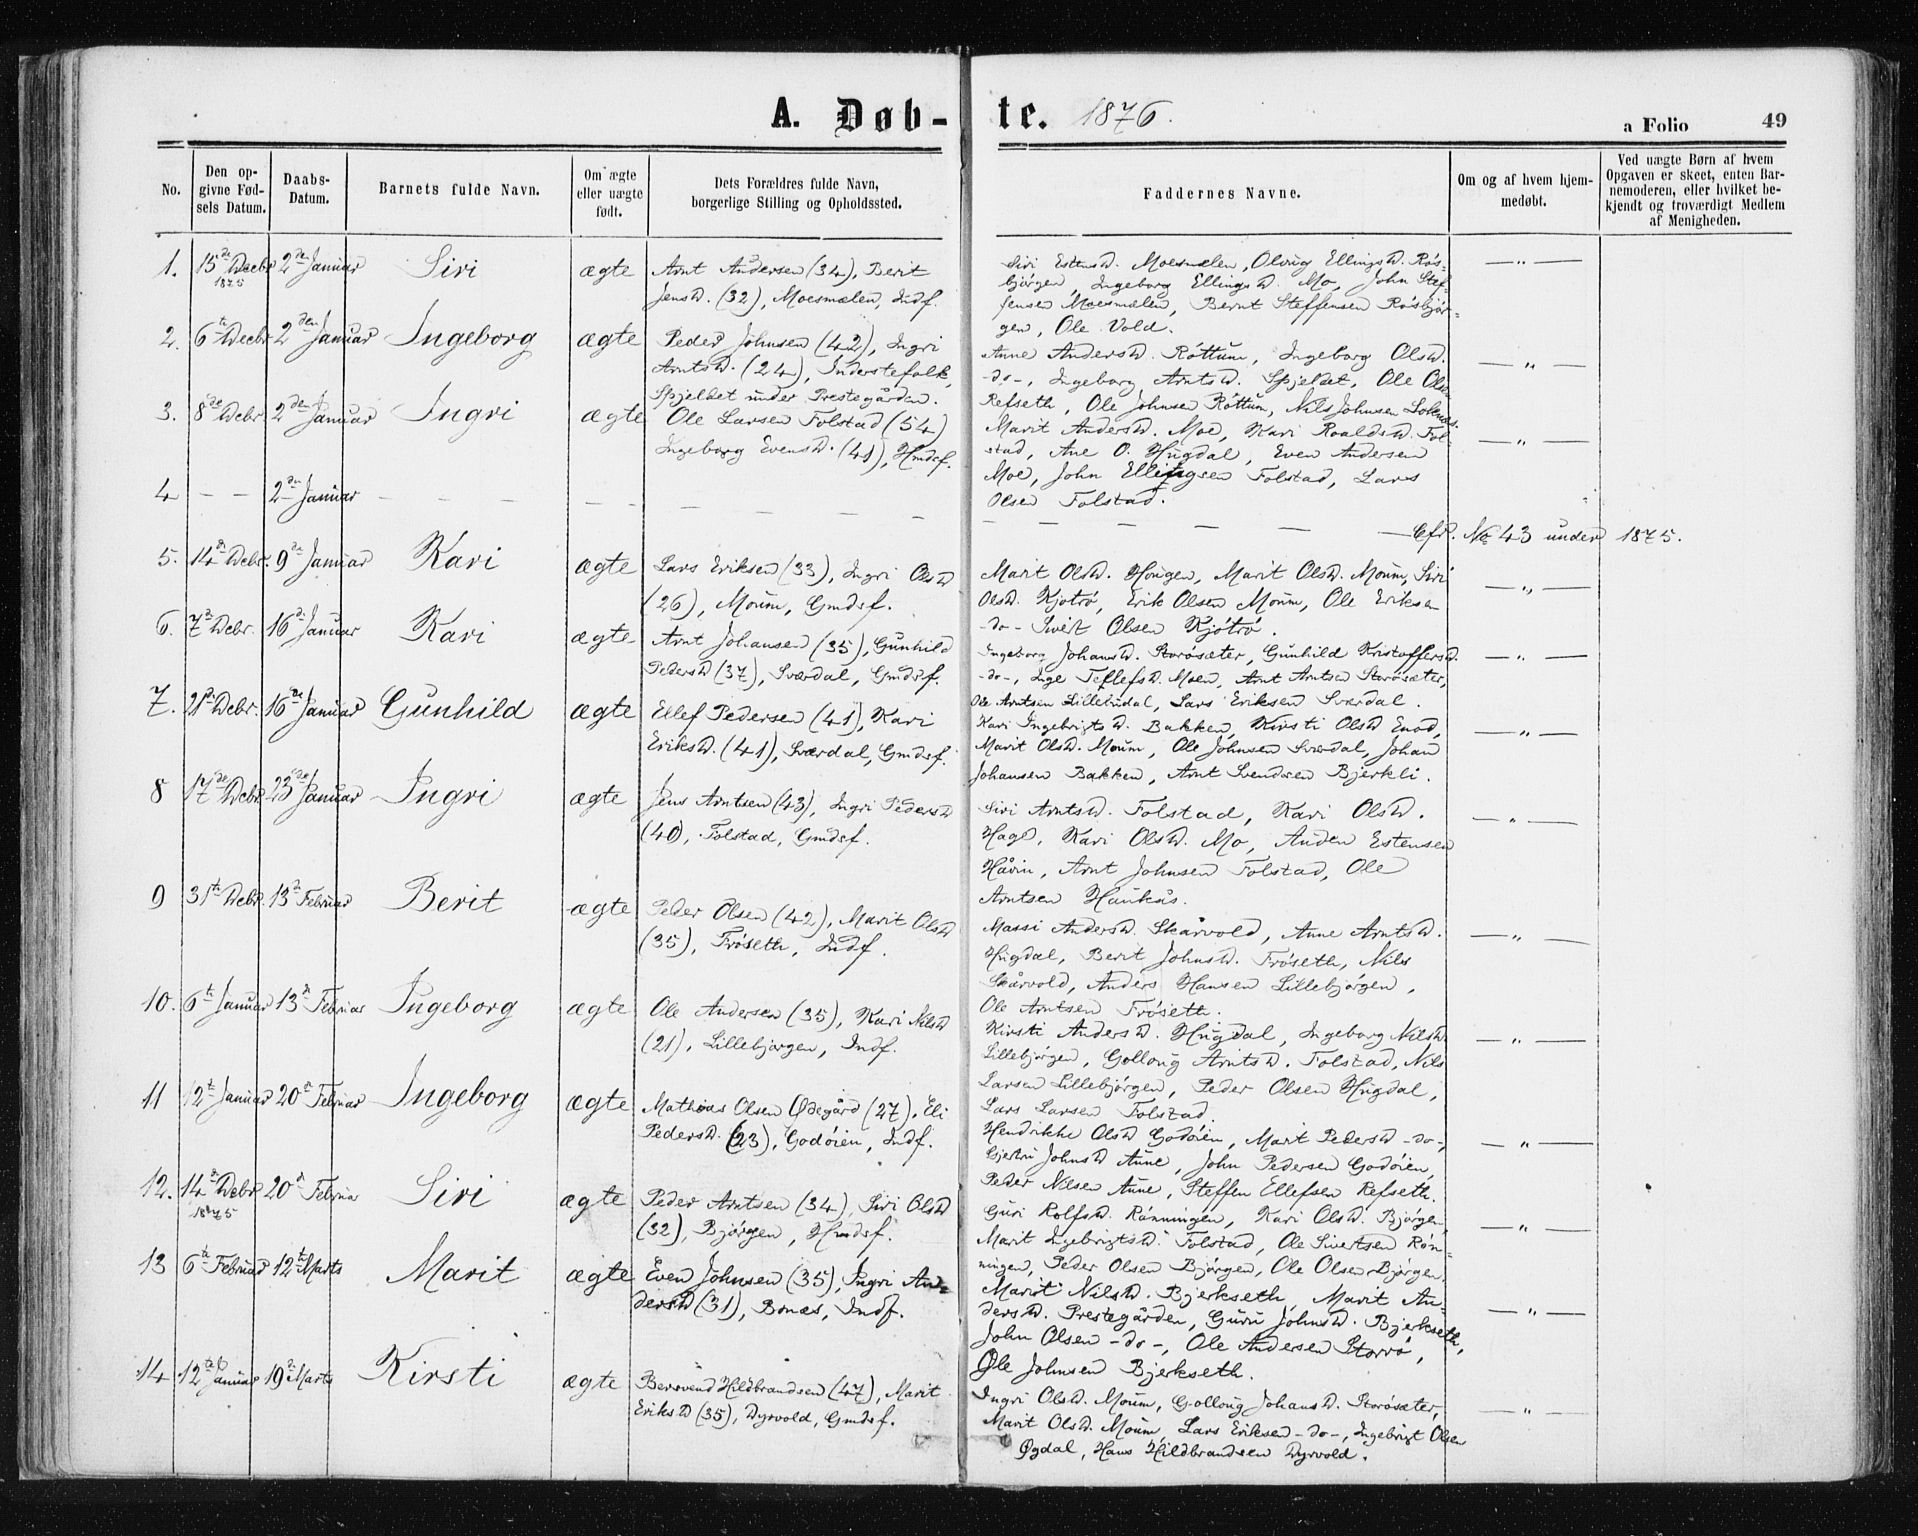 A. Døb-te. 1876.
a Folio 49
No.
Den op-
givne Fød-
sels Datum.
Daabs-
Datum.
Barnets fulde Navn.
Om ægte
eller uægte
født.
Dets Forældres fulde Navn,
borgerlige Stilling og Opholdssted.
Faddernes Navne.
Om og af hvem hjem-
medøbt.
Ved uægte Børn af hvem
Opgaven er skeet, enten Bar-
nemoderen, eller hvilket be-
kjendt og troværdigt Medlem
af Menigheden.
1. 15de Decbr 1875 2den Januar Siri ægte
Arnt Andersen (34), Berit
Jensd. (32), Moesmælen, Indf.
Siri Estensd. Moesmælen, Olaug Ellingsd. Røs-
bjørgen, Ingeborg Ellingsd. Mo, John Stef-
fensen Moesmælen, Bernt Steffensen Røsbjør-
gen, Ole Vold.
— „ —
2. 6te Decbr 2den Januar Ingeborg ægte
Peder Johnsen (42), Ingri
Arntsd. (24), Inderstefolk,
Spjeldet under Prestegården.
Anne Andersd. Røttum, Ingeborg Olsd.
-do-, Ingeborg Arntsd. Spjeldet, Ole Olsen
Refseth, Ole Johnsen Røttum, Nils Johnsen
— „ —
3. 8de Debr. 2den Januar Ingri ægte
Ole Larsen Folstad (54)
Ingeborg Evensd. (41), Hmdsf.
Marit Andersd. Moe, Kari Roaldsd. Fol-
stad, Ane O. Hugdal, Even Andersen
Moe, John Ellingsen Folstad, Lars
Olsen Folstad.
— „ —
4 — — 2den Januar — — — — — — — — — —
— — — — — — Cfr. No 43 under 1875.
5. 14de Debr. 9de Januar Kari ægte
Lars Eriksen (33), Ingri Olsd
(26), Moum, Gmdsf.
Marit Olsd. Hougen, Marit Olsd. Moum, Siri
Olsd. Kjøtrø, Erik Olsen Moum, Ole Eriksen
-do- Sivert Olsen Kjøtrø.
— „ —
6. 7de Debr. 16de Januar Kari ægte
Arnt Johansen (35), Gunhild
Pedersd (37), Sværdal, Gmdsf.
Ingeborg Johansd. Storøsæter, Gunhild Kristoffersd.
-do-, Inge Tefleffsd. Moen, Arnt Arntsen Storøsæter,
Ole Arntsen Lillebudal, Lars Eriksen Sværdal.
— „ —
7. 21de Debr. 16de Januar Gunhild ægte
Ellef Pedersen (41), Kari
Eriksd. (41), Sværdal, Gmdsf.
Kari Ingebrigtsd. Bakken, Kirsti Olsd Enod,
Marit Olsd. Moum, Ole Johnsen Sværdal, Johan
Johansen Bakken, Arnt Svendsen Bjerkli.
— „ —
8 17de Debr. 23de Januar Ingri ægte
Jens Arntsen (43), Ingri Pedersd
(40), Folstad, Gmdsf.
Siri Arntsd. Folstad, Kari Olsd.
Hage, Kari Olsd. Mo, Anden Estensen
Håvin, Arnt Johnsen Folstad, Ole
Arntsen Haukås.
— „ —
9 31te Debr. 13de Februar Berit ægte
Peder Olsen (42), Marit Olsd
(35), Frøseth, Indf.
Massi Andersd. Skårvold, Anne Arntsd.
Hugdal, Berit Johnsd. Frøseth, Nils
Skårvold, Anders Hansen Lillebjørgen,
Ole Arntsen Frøseth.
— „ —
10. 6te Januar 13de Februar Ingeborg ægte
Ole Andersen (35), Kari Nilsd
(21), Lillebjørgen, Indf.
Kirsti Andersd. Hugdal, Ingeborg Nilsd.
Lillebjørgen, Gollaug Arntsd. Folstad, Nils
Larsen Lillebjørgen, Peder Olsen Hugdal,
Lars Larsen Folstad.
— „ —
11 12te Januar 20de Februar Ingeborg ægte
Mathias Olsen Ødegård (27), Eli
Pedersd. (23), Godøien, Indf.
Hendrikke Olsd Godøien, Marit Pedersd -do-,
Gjertru Johnsd Aune, John Pedersen Godøien,
Peder Nilsen Aune, Steffen Ellefsen Refseth.
— „ —
12. 14de Debr 1875 20de Februa Siri ægte
Peder Arntsen (34), Siri Olsd
(32), Bjørgen, Hmdsf.
Guri Rolfsd. Rønningen, Kari Olsd. Bjørgen,
Marit Ingebrigtsd. Folstad, Ole Sivertsen Røn-
ningen, Peder Olsen Bjørgen, Ole Olsen Bjørgen.
— „ —
13 6te Februar 12te Marts Marit ægte
Even Johnsen (35), Ingri An-
dersd (31), Bonæs, Indf.
Marit Nilsd. Bjerkseth, Marit An-
dersd. Prestegården, Guru Johnsd. Bjerkseth,
John Olsen -do-, Ole Andersen Storrø,
Ole Johnsen Bjerkseth.
— „ —
14 12te Januar 19de Marts Kirsti ægte
Bersvend Hildbrandsen (47), Marit
Eriksd (35), Dyrvold, Gmdsf.
Ingri Olsd. Moum, Gollaug Johansd. Storøsæter,
Marit Olsd. Moum, Lars Eriksen -do-, Ingebrigt Olsen
Øgdal, Hans Hildbrandsen Dyrvold.
— „ —